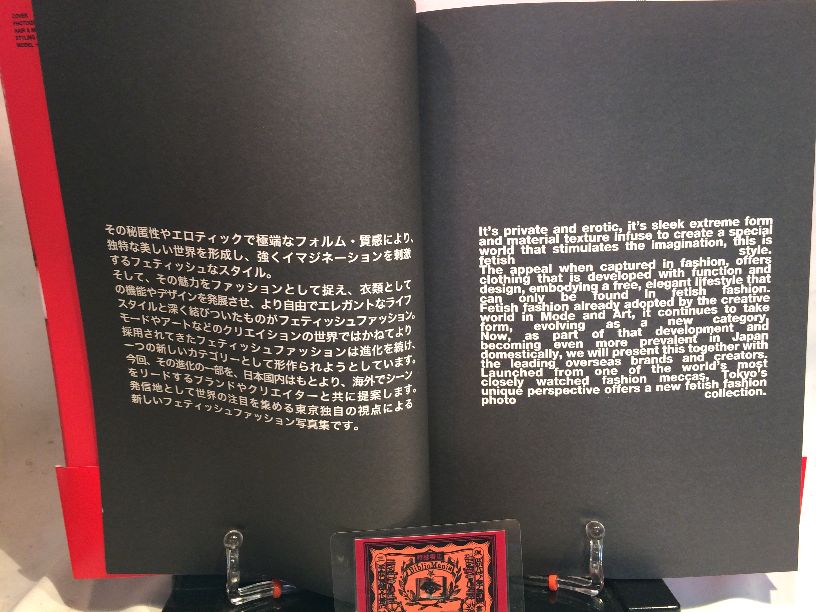 COVER
HAIR & M
STYLING
MODEL
その秘匿性やエロティックで極端なフォルム・質感により、
独特な美しい世界を形成し、強くイマジネーションを刺激
するフェティッシュなスタイル。
そして、その魅力をファッションとして捉え、衣類として
の機能やデザインを発展させ、より自由でエレガントなライフ
スタイルと深く結びついたものがフェティッシュファッション。
モードやアートなどのクリエイションの世界ではかねてより
採用されてきたフェティッシュファッションは進化を続け、
一つの新しいカテゴリーとして形作られようとしています。
今回、その進化の一部を、日本国内はもとより、海外でシーン
をリードするブランドやクリエイターと共に提案します。
発信地として世界の注目を集める東京独自の視点による
新しいフェティッシュファッション写真集です。
It's private and erotic, it's sleek extreme form
and material texture infuse to create a special
world that stimulates the imagination, this is
fetish style.
The appeal when captured in fashion, offers
clothing that is developed with function and
design, embodying a free, elegant lifestyle that
can only be found in fetish fashion.
Fetish fashion already adopted by the creative
world in Mode and Art, it continues to take
form, evolving as a new category,
Now, as part of that development and
becoming even more prevalent in Japan
domestically, we will present this together with
the leading overseas brands and creators.
Launched from one of the world's most
closely watched fashion meccas, Tokyo's
unique perspective offers a new fetish fashion
photo collection.
BiblioMania